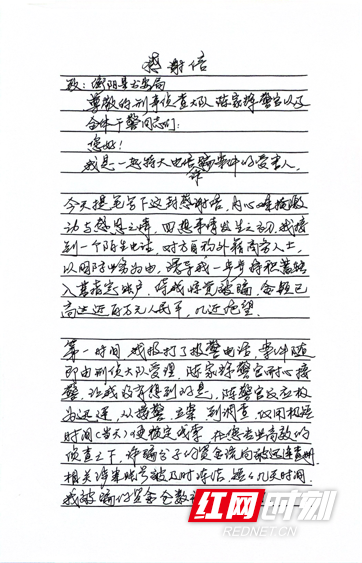 感谢信
致：衡阳县公安局
尊敬的刑事侦查大队陈家择警官以及
全体干警同志们：
您好！
我是一起特大电信诈骗案件的受害人，
今天提笔写下这封感谢信，内心难掩激
动与感恩之情，回想事情发生之初，我接
到一个陌生电话，对方自称外籍商务人士，
以网购业务为由，诱导我一步步将积蓄转
入其指定账户，待我惊觉被骗，金额已
高达近百万元人民币，几近绝望。
第一时间，我报打了报警电话，案件随
即由刑侦大队受理，陈家择警官耐心接
警，让我没有想到的是，陈警官反应极
为迅速，从接警、立案、到调查，仅用极短
时间（当天）便锁定线索，在您专业高效的
侦查之下，诈骗分子的资金流向被迅速查明，
相关涉案账号被及时冻结，短短几天时间，
我被骗的资金全数
红网时刻
REDNET.CN